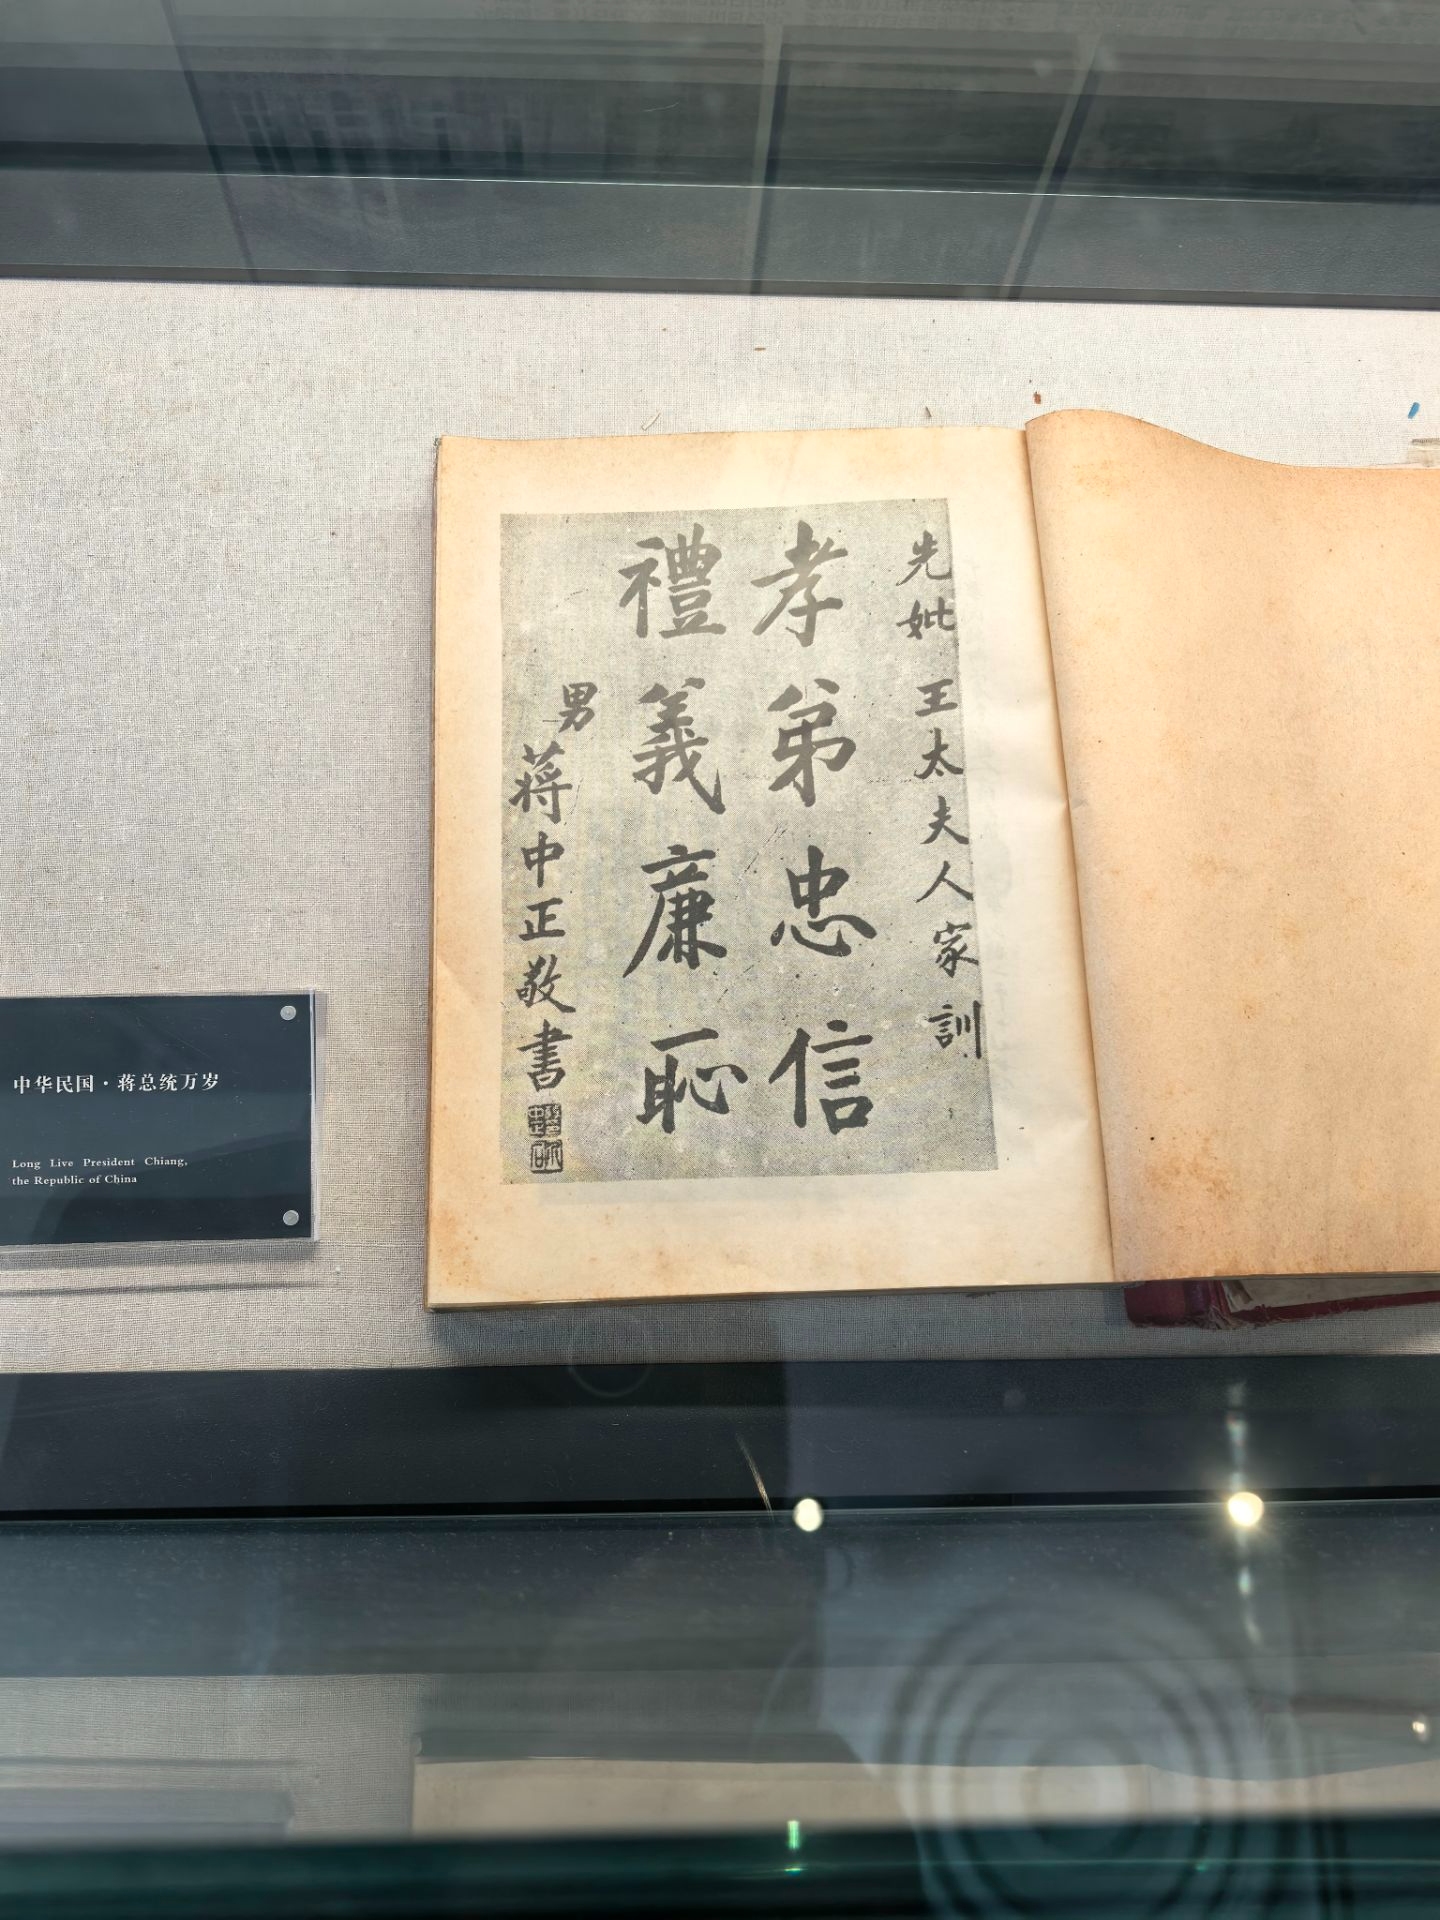 先妣 王太夫人家訓
孝弟忠信
禮義廉恥
男 蔣中正敬書
中华民国·蒋总统万岁
Long Live President Chiang,
the Republic of China